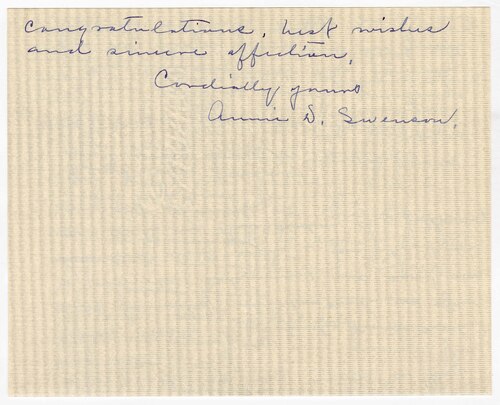 congratulations, best wishes
and sincere affection,
Cordially yours
Annie S. Swenson.